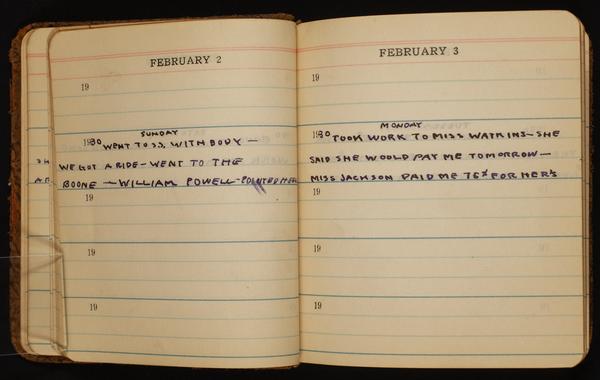 FEBRUARY 2
19
SUNDAY
1930 WENT TO S.S. WITH BODY —
WE GOT A RIDE – WENT TO THE
BOONE — WILLIAM POWELL – POINTED HER
19
19
19
FEBRUARY 3
19
MONDAY
1930 TOOK WORK TO MISS WATKINS – SHE
SAID SHE WOULD PAY ME TOMORROW —
MISS JACKSON PAID ME 76¢ FOR HER'S
19
19
19